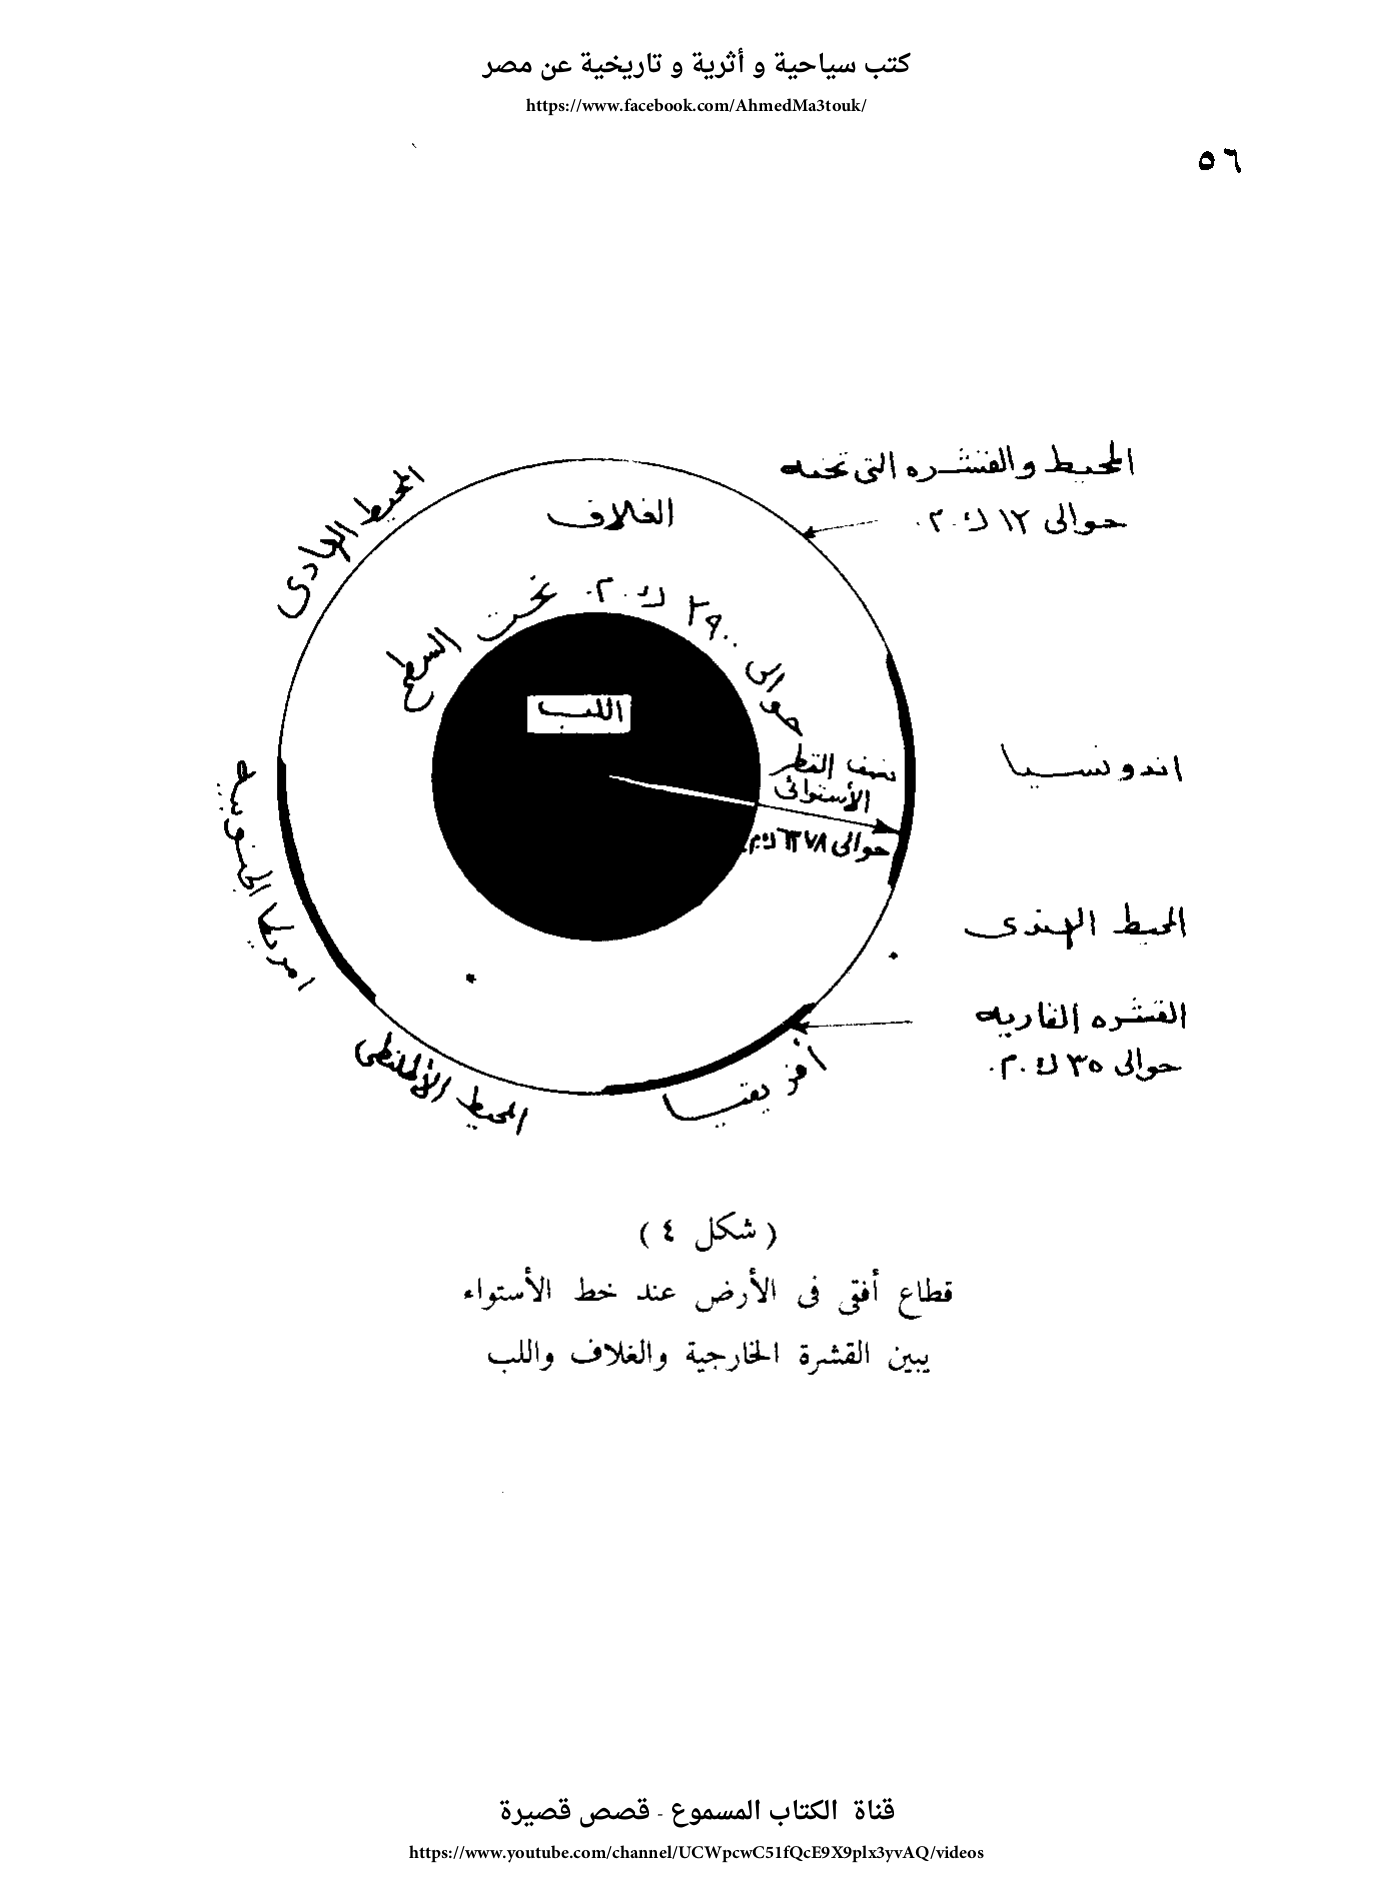 كتب سياحية و أثرية و تاريخية عن مصر
https://www.facebook.com/AhmedMa3touk/
٥٦
المحيط والقشره التى تحته
حوالى ١٢ ك.م.
المحيط الهادى
الغلاف
حوالى ٢٩٠٠ ك.م. تحت السطح
اللب
نصف القطر
الأستوائى
حوالى ٦٣٧٨ ك.م.
اندونسيا
امريكا الجنوبيه
المحيط الهندى
القشره القاريه
حوالى ٣٥ ك.م.
أفريقيا
المحيط الأطلنطى
( شكل ٤ )
قطاع أفقى فى الأرض عند خط الأستواء
يبين القشرة الخارجية والغلاف واللب
قناة الكتاب المسموع - قصص قصيرة
https://www.youtube.com/channel/UCWpcwC51fQcE9X9plx3yvAQ/videos